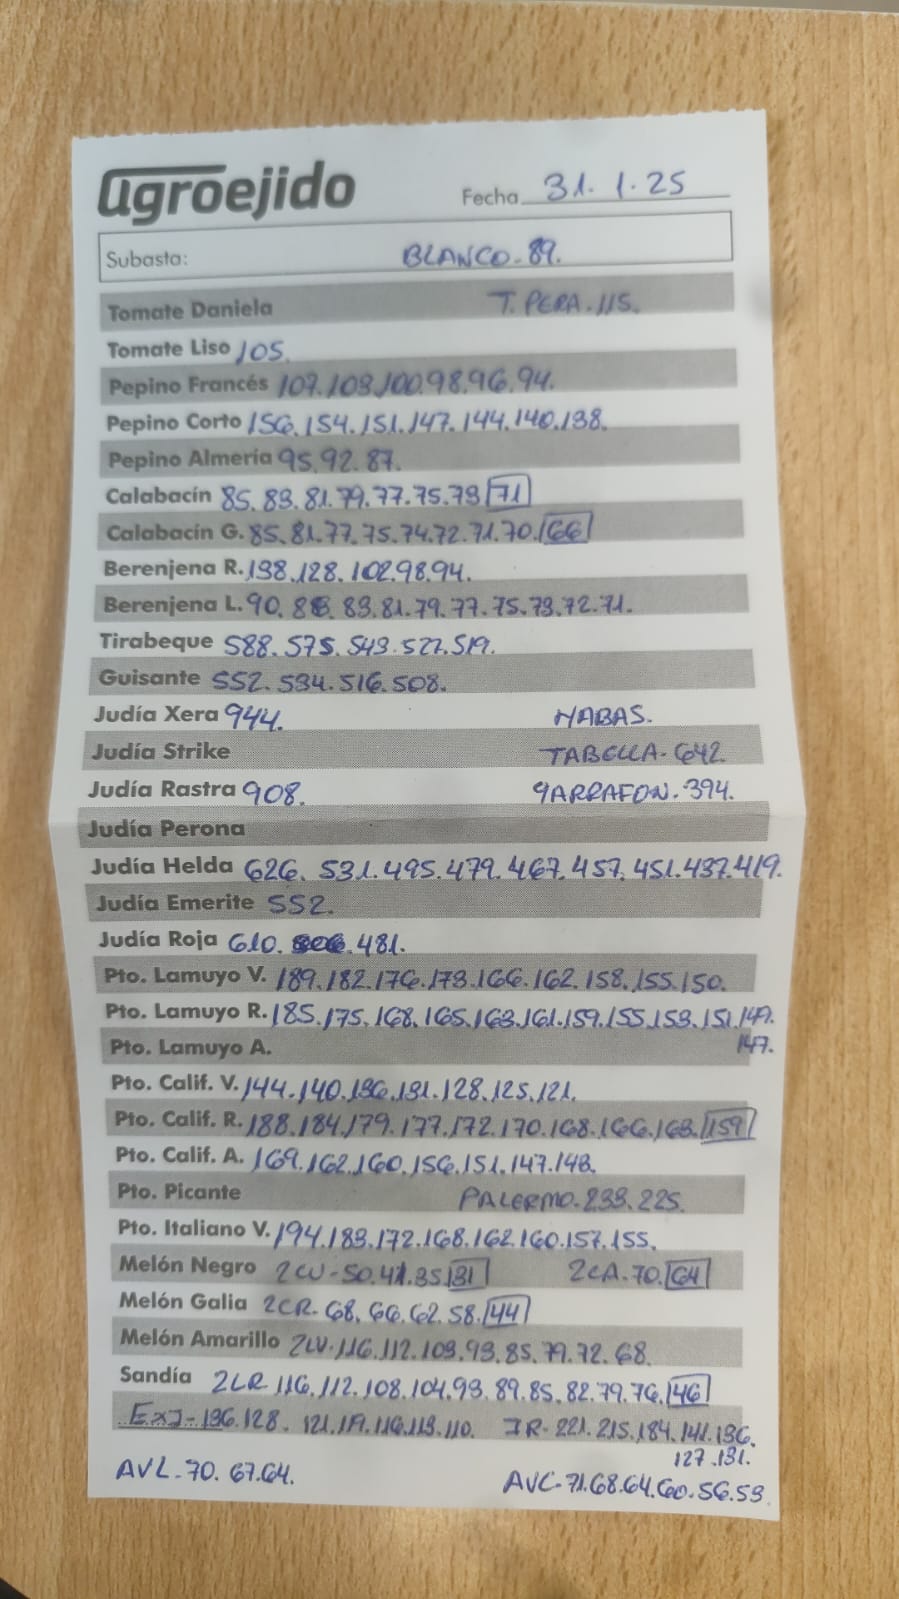 agroejido Fecha 31.1.25
Subasta: BLANCO-89.
Tomate Daniela T. PERA.115.
Tomate Liso 105.
Pepino Francés 107.103.100.98.96.94.
Pepino Corto 156.154.151.147.144.140.138.
Pepino Almería 95.92.87.
Calabacín 85.83.81.79.77.75.73 71
Calabacín G. 85.81.77.75.74.72.71.70. 66
Berenjena R. 138.128.102.98.94.
Berenjena L. 90. 83.81.79.77.75.73.72.71.
Tirabeque 588.575.543.527.519.
Guisante 552.534.516.508.
Judía Xera 944. HABAS.
Judía Strike TABELLA-642
Judía Rastra 908. GARRAFON.394.
Judía Perona
Judía Helda 626.531.495.479.467.457.451.437.419.
Judía Emerite 552.
Judía Roja 610. 481.
Pto. Lamuyo V. 189.182.176.173.166.162.158.155.150.
Pto. Lamuyo R. 185.175.168.165.163.161.159.155.153.151.149.
Pto. Lamuyo A. 147.
Pto. Calif. V. 144.140.136.131.128.125.121.
Pto. Calif. R. 188.184.179.177.172.170.168.166.163. 159
Pto. Calif. A. 169.162.160.156.151.147.143.
Pto. Picante PALERMO.233.225.
Pto. Italiano V. 194.183.172.168.162.160.157.155.
Melón Negro 2CV-50.41.35. 31 2CA.70. 64
Melón Galia 2CR-68.66.62.58. 44
Melón Amarillo 2LV-116.112.103.93.85.79.72.68.
Sandía 2LR 116.112.108.104.93.89.85.82.79.76. 46
ExJ-136.128.121.119.116.113.110. IR-221.215.184.141.136.
127.131.
AVL-70.67.64. AVC-71.68.64.60.56.53.